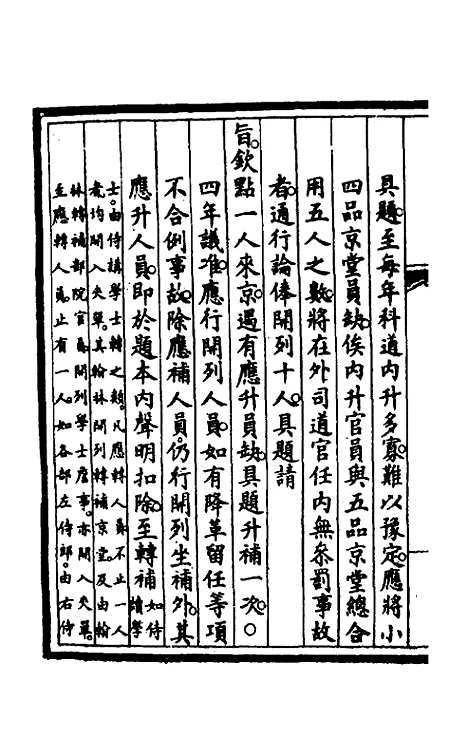 具題。至每年科道内升多寡。難以豫定。應將小
四品京堂員缺。俟内升官員與五品京堂總合
用五人之數。將在外司道官任内無叅罰事故
者。通行論俸開列十人。具題請
旨。欽點一人來京。遇有應升員缺。具題升補一次。○
四年議准。應行開列人員。如有降革留任等項
不合例事故。除應補人員。仍行開列坐補外。其
應升人員。即於題本内聲明扣除。至轉補如侍讀學
士。由侍講學士轉之類。凡應轉人員不止一人
者。均開入夾單。其翰林開列轉補京堂。及由翰
林轉補部院官員。開列學士詹事。亦開入夾單。
至應轉人員。止有一人。如各部左侍郎。由右侍